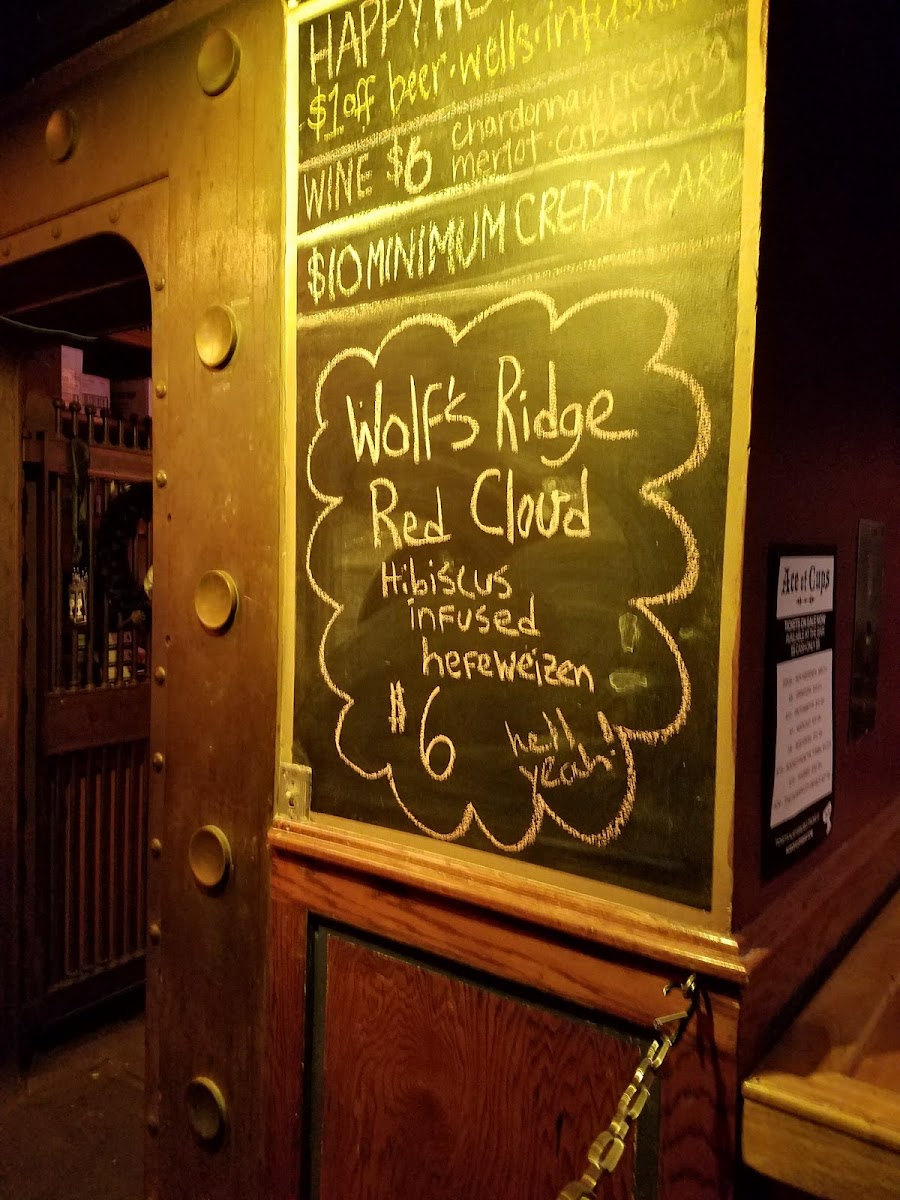 HAPPY HO
$1 off beer·wells·infusions
WINE $6 chardonnay·riesling
merlot·cabernet
$10 MINIMUM CREDIT CARD
Wolf's Ridge
Red Cloud
Hibiscus
infused
hefeweizen
$6
hell
yeah!
Ace of Cups
TICKETS ON SALE NOW
AVAILABLE AT THE BAR